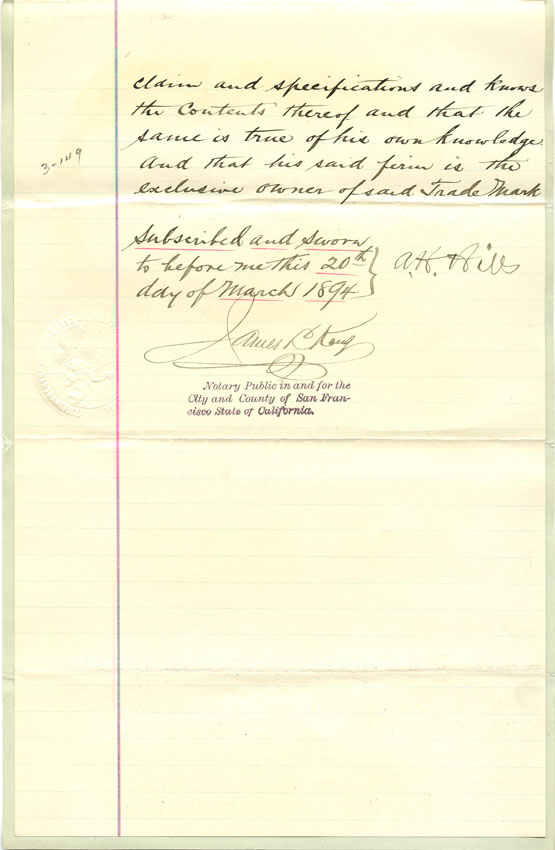 claim and specifications and knows
the Contents thereof and that the
same is true of his own knowledge.
And that his said firm is the
exclusive owner of said Trade Mark
3-149
Subscribed and Sworn
to before me this 20th
day of March 1894
A.H. Hills
James L King
Notary Public in and for the
City and County of San Fran-
cisco State of California.